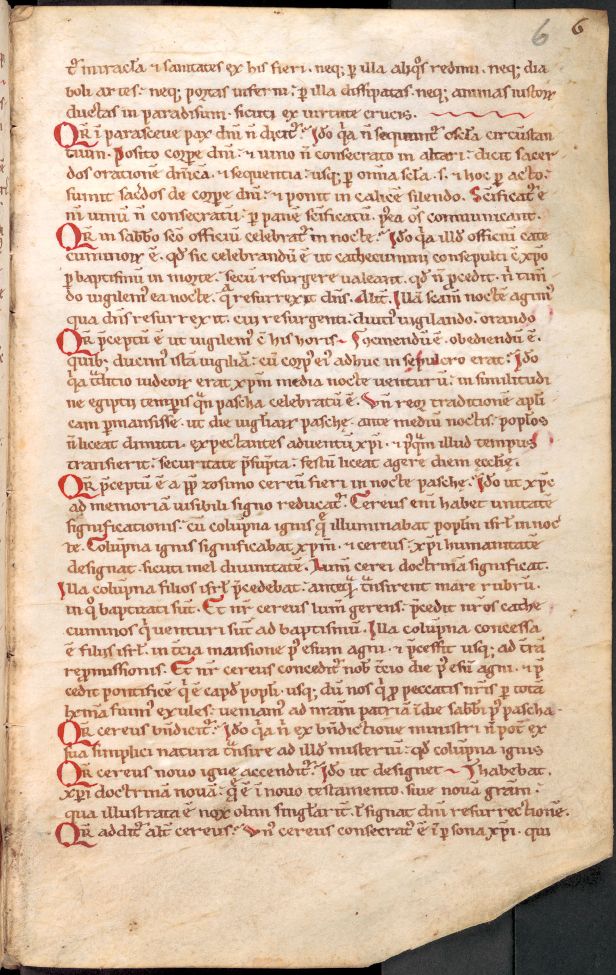 6 6
t̄ miracl̄a ⁊ sanitates ex his fieri . neq; ꝑ illa aliq̊s redimi . neq; dia
boli artes . neq; portas inferni . ꝑ illa dissipatas . neq; animas iustoꝝ
ductas in paradisum . sicuti ex virtute crucis .
QR̄ ī parasceue pax dn̄i n̄ dicit᷑ . Ido q̄a n̄ sequunt᷑ oscl̄a circūstan
tium . Posito corꝑe dn̄i . ⁊ uino n̄ consecrato in altari . dicit sacer
dos orationē dn̄ica ⁊ sequentia . usq; ꝑ omnia scl̄a . s . ⁊ hoc ꝑacto .
sumit sac̄dos de corꝑe dn̄i . ⁊ ponit in calicē silendo . Sc̄ificat᷑ e
ni uinū n̄ consecratū . ꝑ panē sc̄ificatū . ꝑea om̄s communicant .
QR̄ in sabb̄o sc̄o officiū celebrat᷑ in nocte . Ido q̄a illd̄ officiū cate
cuminoꝝ ē . qd̄ sic celebrandū ē ut cathecumini consepulti c̄ xp̄o
ꝑ baptismū in morte . secū resurgere ualeant . qd̄ n̄ p̄cedit . n̄ tun
do uigilem᷑ ea nocte . q̄ resurrexit dn̄s . Alit̄ . Illā sc̄am nocte agim᷒
qua dn̄s resurrexit . cui resurgenti . diuti᷒ uigilando . orando
QR̄ p̄ceptū ē ut uigilem᷒ ī his horis ⁊ ſcinendū ē . obediendū ē .
quib; ducim᷒ istā uigiliā . cū corp᷒ ei᷒ adhuc in sepulcro erat . Ido
q̄a t̄ditio iudeoꝝ erat xp̄m media nocte uenturū . in similitudi
ne egiptii temporis qn̄ pascha celebratū ē . Vn̄ reoꝝ traditionē apl̄i
cam ꝑmansisse . ut die uigiliaꝝ pasche . ante mediū noctis . popl̄os
n̄ liceat dimitti . expectantes aduentū xp̄i . ⁊ p᷒qm̄ illud tempus
transierit . securitate p̄sūpta . festū liceat agere diem eccl̄ie .
QR̄ p̄ceptū ē a pp̄ zosimo cereū fieri in nocte pasche . Ido ut xp̄c
ad memoriā uisibili signo reducat᷑ . Cereus eni habet unitatē
significationis . cū colūpna ignis q̄ illuminabat popl̄m isr̄l in noc
te . Colūpna ignis significabat xp̄m . ⁊ cereus . xp̄i humanitatē
designat . sicuti mel diuinitatē . Lumē cerei doctrinā significat .
Illa colūpna filios isr̄l p̄cedebat . anteq̄ t̄nsirent mare rubrū .
in q̊ baptizati sūt . Et nr̄ cereus lum̄ gerens . p̄cedit nr̄os cathe
cuminos q̇ uenturi sūt ad baptismū . Illa colūpna concessa
ē filiis isr̄l . in t̄cia mansione p᷒ esum agni . ⁊ p̄cessit usq; ad t̄ra
repmissionis . Et nr̄ cereus concedit᷑ nob̄ t̄cio die p᷒ esū agni . ⁊ p̄
cedit pontificē q̇ ē capd̄ popl̄i . usq; dū nos q̇ ꝓ peccatis nr̄is ꝑ totā
hemā fuim᷒ exules . ueniam᷒ ad nr̄am patriā ī die sabb̄i p᷒ pascha
QR̄ cereus bn̄dicit᷑ . Ido q̄a n̄ ex bn̄dictione ministri n̄ pōt ex
sua simplici natura t̄nsire ad illd̄ misteriū . qd̄ colūpna ignis
QR̄ cereus nouo igne accendit᷑ . Ido ut designet ⁊ habebat .
xp̄i doctrinā nouā . q̄ ē ī nouo testamento . siue nouā gr̄am .
qua illustrata ē nox olim singl̄arit᷑ . ł signat dn̄i resurrectionē .
QR̄ addit᷑ alt̄ cereus . Vn᷒ cereus consecrat᷑ ē ī ꝑsona xp̄i . qui